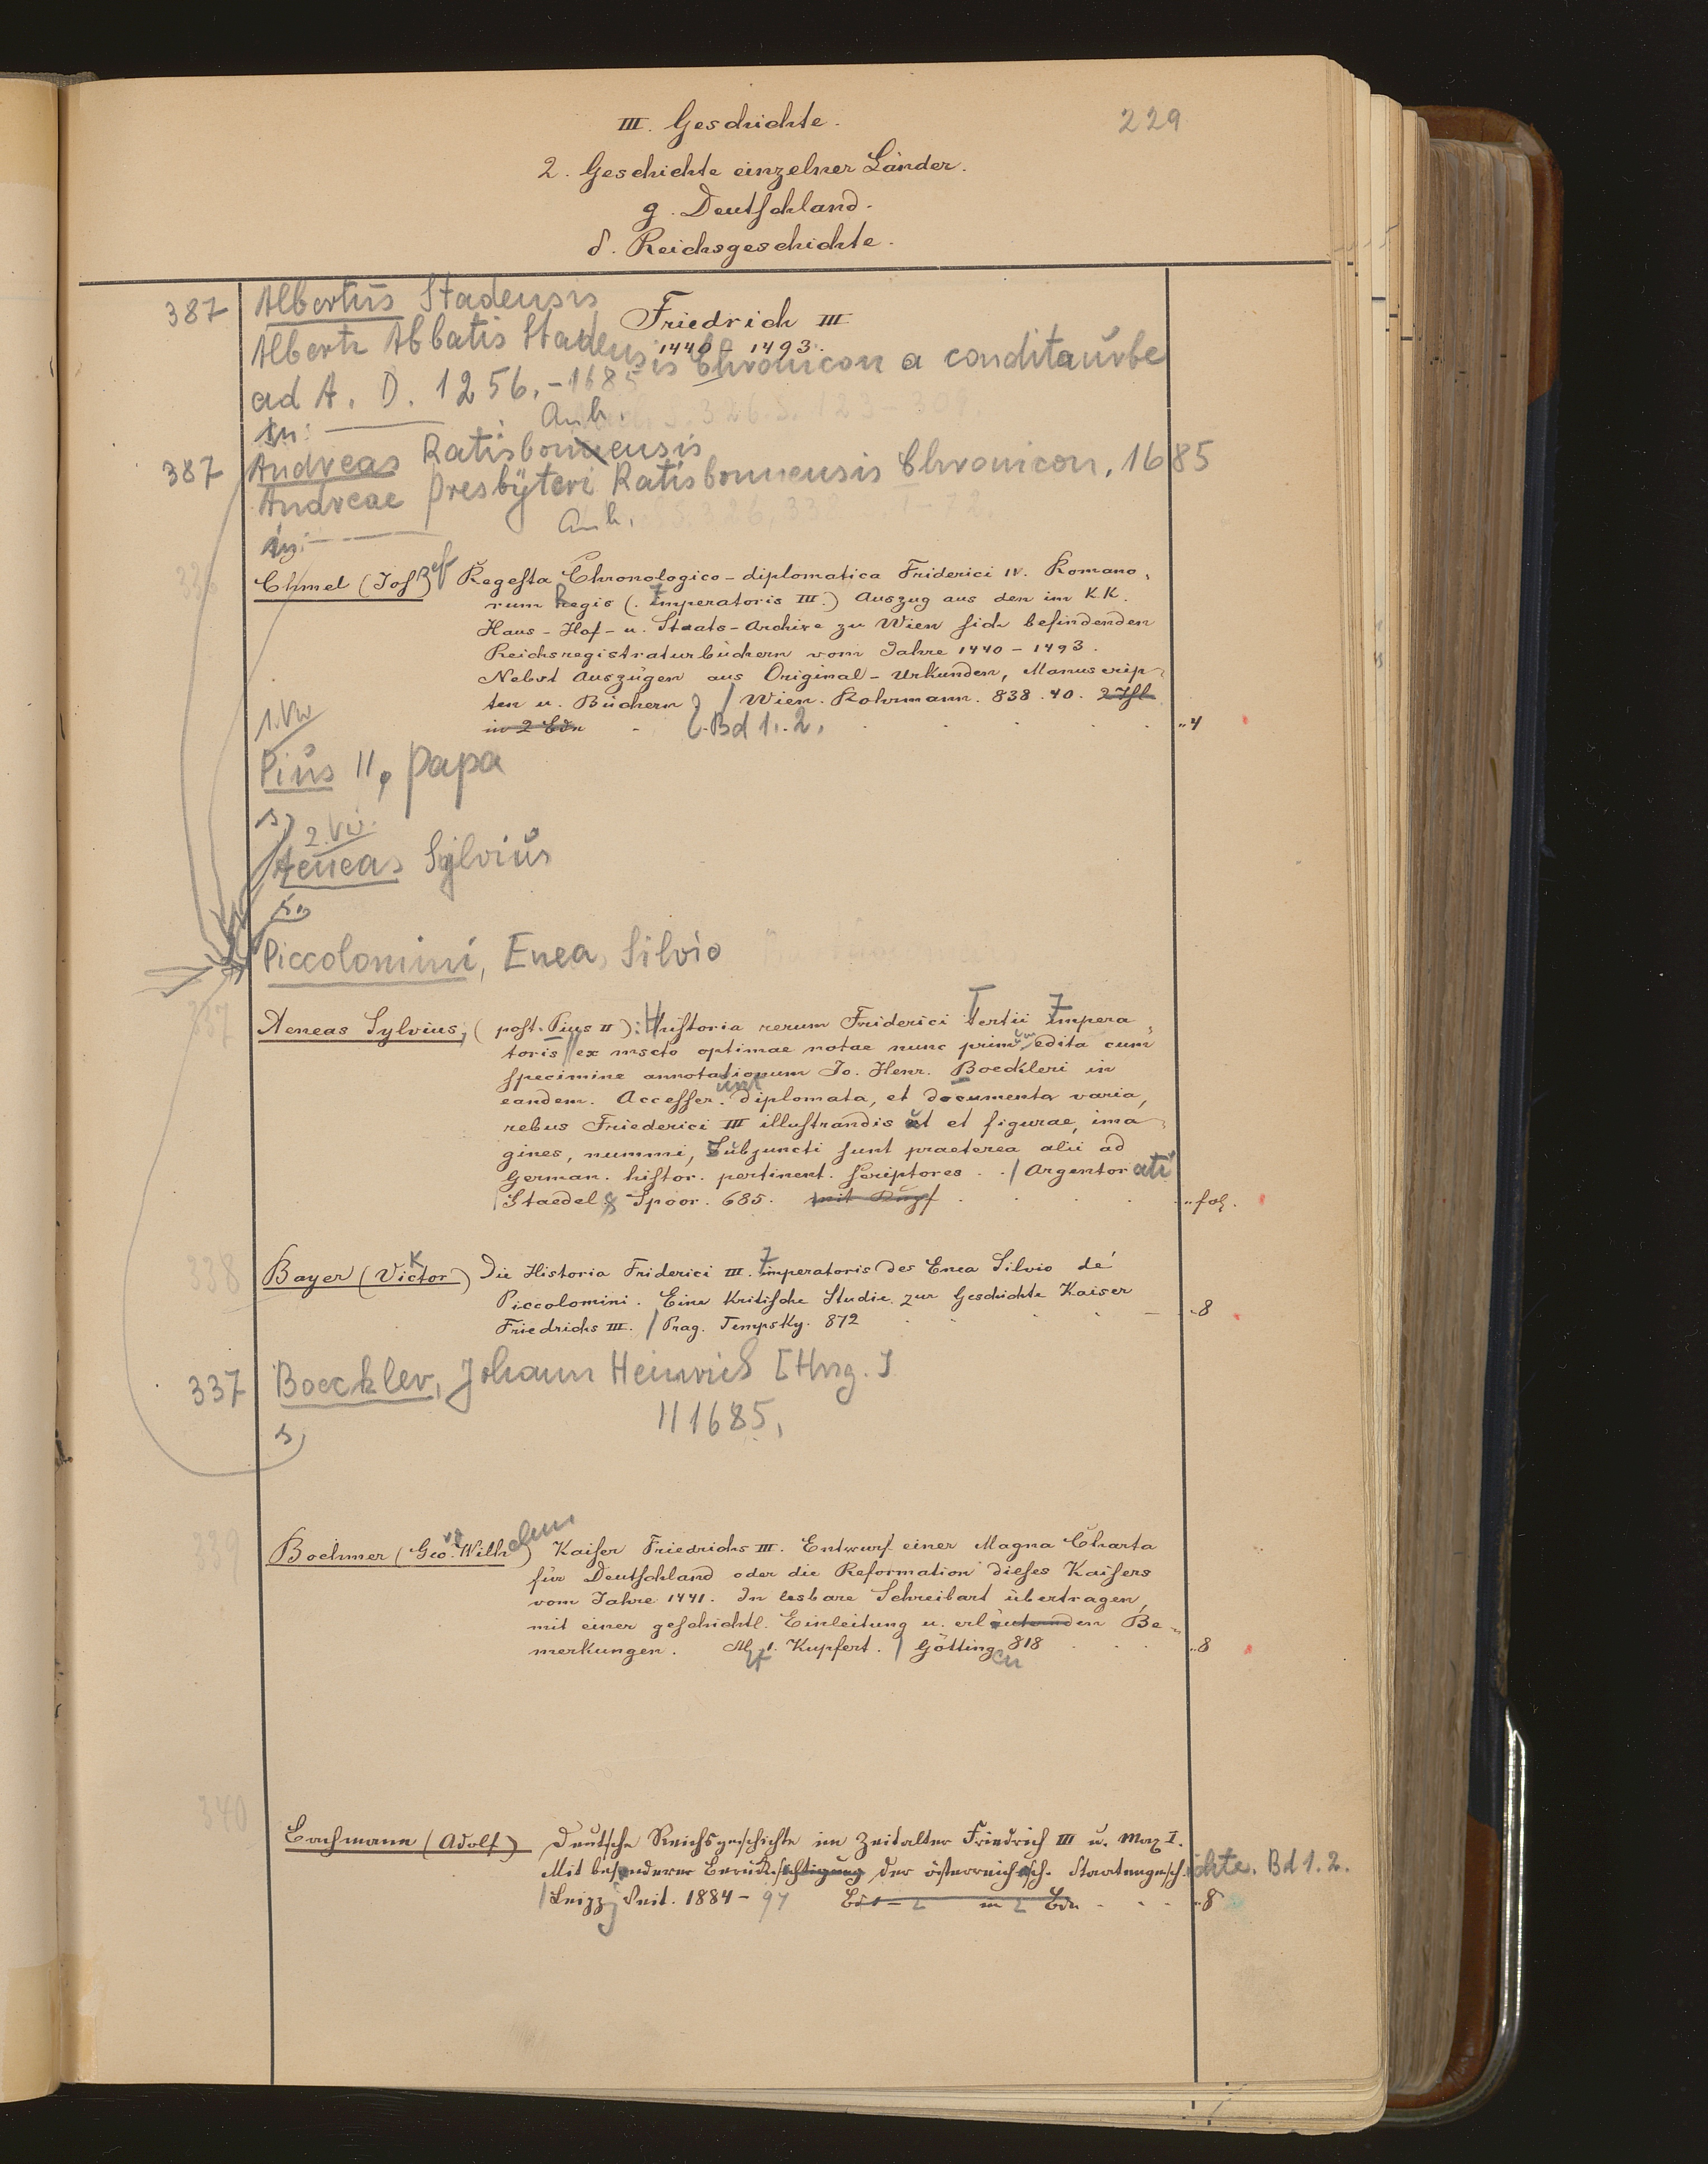 III. Geschichte.
229
2. Geschichte einzelner Länder.
g. Deutschland.
δ. Reichsgeschichte.
387 Albertus Stadensis
Friedrich III
1440 - 1493.
Alberti Abbatis Stadensis Chronicon a condita urbe
ad A. D. 1256. - 1685
Anh.
In:
387 Andreas Ratisbonensis
Andreae Presbyteri Ratisbonnensis Chronicon, 1685
Anh.
in:
336
Chmel (Josef) Regesta Chronologico-diplomatica Friderici IV. Romano-
rum Regis (Imperatoris III.) Auszug aus den im K.K.
Haus- Hof- u. Staats-Archive zu Wien sich befindenden
Reichsregistraturbüchern vom Jahre 1440 - 1493.
Nebst Auszügen aus Original-Urkunden, Manuscrip-
ten u. Büchern / Wien. Rohrmann. 838.40. 2 Thl
in 2 Bdn Bd 1. 2. 4
1. Vw
Pius II, Papa
s
2. Vw.
Aeneas Sylvius
s
Piccolomini, Enea Silvio
337
Aeneas Sylvius, (post. Pius II): Historia rerum Friderici Tertii Impera-
toris // ex mscto optimae notae nunc primum edita cum
specimine annotationum Jo. Henr. Boeckleri in
eandem. Accesserunt diplomata, et documenta varia,
rebus Friederici III illustrandis ut et figurae, ima-
gines, nummi, Subjuncti sunt praeterea alii ad
German. histor. pertinent. Scriptores. / Argentorati
/ Staedel & Spoor. 685. fol.
338
Bayer (Viktor) Die Historia Friderici III. Imperatoris des Enea Silvio de'
Piccolomini. Eine Kritische Studie zur Geschichte Kaiser
Friedrichs III. / Prag. Tempsky. 872 8
337 Boeckler, Johann Heinrich [Hrsg.]
// 1685.
s
339
Boehmer (Geo. Wilhelm) Kaiser Friedrichs III. Entwurf einer Magna Charta
für Deutschland oder die Reformation dieses Kaisers
vom Jahre 1441. In lesbare Schreibart übertragen,
mit einer geschichtl. Einleitung u. erläuternden Be-
merkungen. Mit 1 Kupfert. / Göttingen 818 8
340
Bachmann (Adolf) Deutsche Reichsgeschichte im Zeitalter Friedrich III u. Max I.
Mit besonderer Berücksichtigung der österreichisch. Staatengeschichte. Bd 1. 2.
/ Leipzig Veit. 1884 - 94 Bd 1 - 2 in 2 Bdn 8